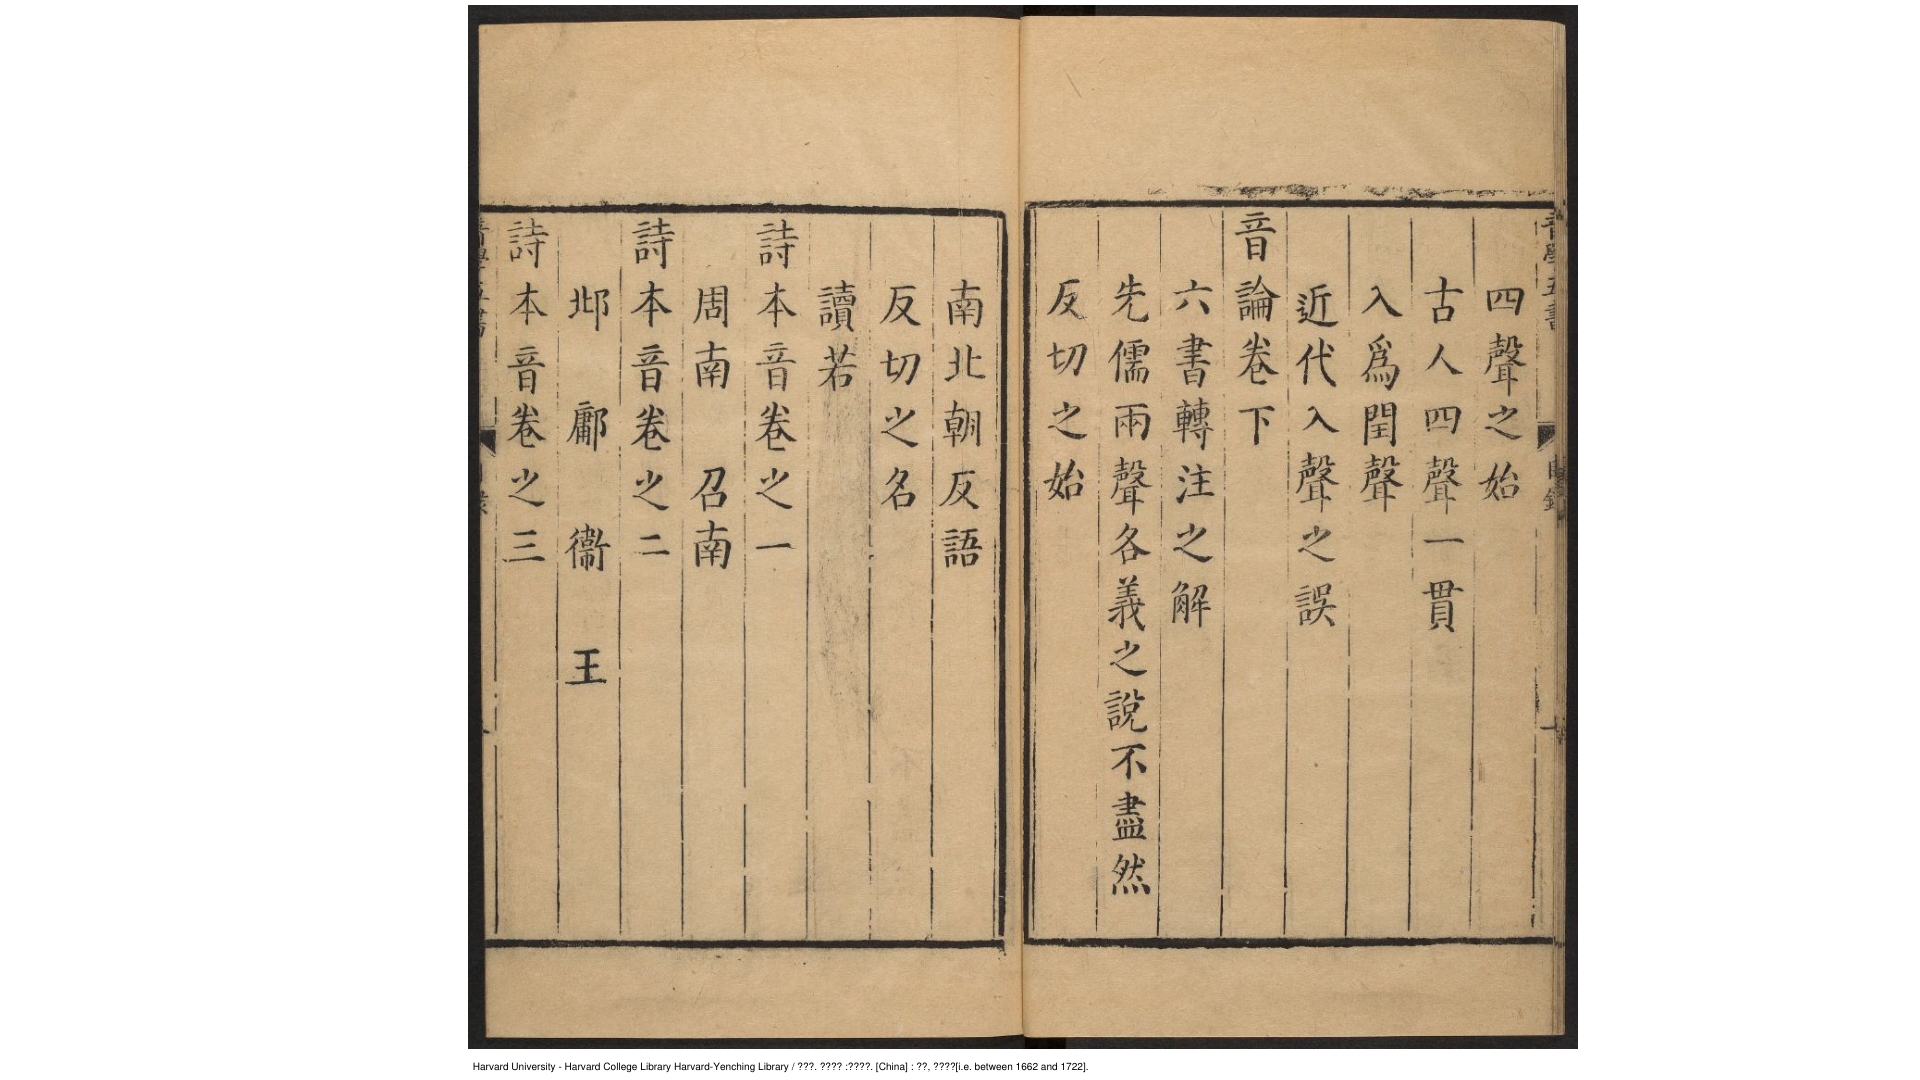 四聲之始
古人四聲一貫
入爲閏聲
近代入聲之誤
音論卷下
六書轉注之解
先儒兩聲各義之說不盡然
反切之始
南北朝反語
反切之名
讀若
詩本音卷之一
周南 召南
詩本音卷之二
邶 鄘 衞 王
詩本音卷之三
Harvard University - Harvard College Library Harvard-Yenching Library / ???. ???? :????. [China] : ??, ????[i.e. between 1662 and 1722].